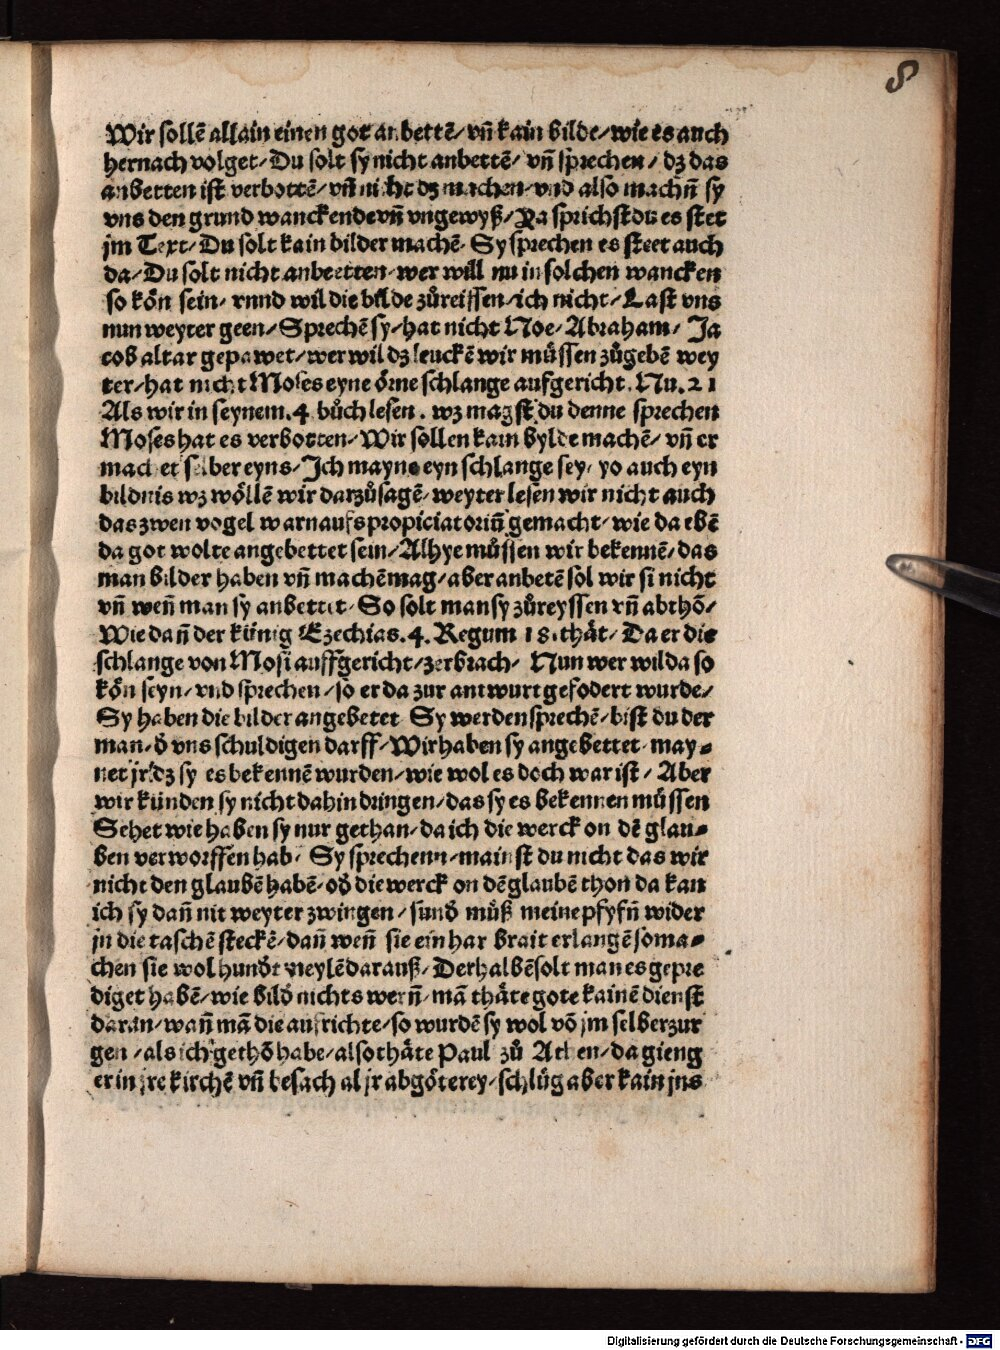 8
Wir sollē allain einen got anbettē/ vñ kain bilde/ wie es auch
hernach volget/ Du solt sy nicht anbettē/ vñ sprechen/ dz das
anbetten ist verbottē/ vñ nicht dz machen/ vnd also machñ sy
vns den grund wanckende vñ vngewyß/ Ja sprichst du es stet
jm Text/ Du solt kain bilder machē/ Sy sprechen es steet auch
da/ Du solt nicht anbeetten/ wer will nu in solchen wancken
so kön sein/ vnnd wil die bilde zůreissen/ ich nicht/ Last vns
nun weyter geen/ Sprechē sy/ hat nicht Noe/ Abraham/ Ja
cob altar gepawet/ wer wil dz leuckē wir müssen zůgebē wey
ter/ hat nicht Moses eyne örne schlange aufgericht. Nu. 21
Als wir in seynem .4. bůch lesen. wz magst du denne sprechen
Moses hat es verbotten/ Wir sollen kain bylde machē/ vñ er
machet selber eyns/ Ich mayne eyn schlange sey/ yo auch eyn
bildnis wz wöllē wir darzů sagē/ weyter lesen wir nicht auch
das zwen vogel warn aufs propiciatoriū gemacht/ wie da ebē
da got wolte angebettet sein/ Alhye müssen wir bekennē/ das
man bilder haben vñ machē mag/ aber anbetē sol wir si nicht
vñ weñ man sy anbettet/ So solt man sy zůreyssen vñ abthō/
Wie dañ der künig Ezechias .4. Regum 18. thät/ Da er die
schlange von Mosi auffgericht/ zerbrach/ Nun wer wil da so
kön seyn/ vnd sprechen/ so er da zur antwurt gefodert wurde/
Sy haben die bilder angebetet Sy werden sprechē/ bist du der
man/ d̄ vns schuldigen darff/ Wir haben sy angebettet/ may⸗
net jr/ dz sy es bekennē wurden/ wie wol es doch war ist/ Aber
wir künden sy nicht dahin dringen/ das sy es bekennen müssen
Sehet wie haben sy nur gethan/ da ich die werck on dē glau⸗
ben verworffen hab/ Sy sprechenn/ mainst du nicht das wir
nicht den glaubē habē/ od̄ die werck on dē glaubē thon da kan
ich sy dañ nit weyter zwingen/ sund̄ můß meine pfyfñ wider
jn die taschē steckē/ dañ weñ sie ein har brait erlangē so ma⸗
chen sie wol hund̄t meylē darauß/ Derhalbē solt man es gepre
diget habē/ wie bild̄ nichts werñ/ mā thäte gote kainē dienst
daran/ wañ mā die aufrichte/ so wurdē sy wol vō jm selber zur
gen/ als ich gethō habe/ also thäte Paul zů Athen/ da gieng
er in jre kirchē vñ besach al jr abgöterey/ schlůg aber kain jns
Digitalisierung gefördert durch die Deutsche Forschungsgemeinschaft - DFG